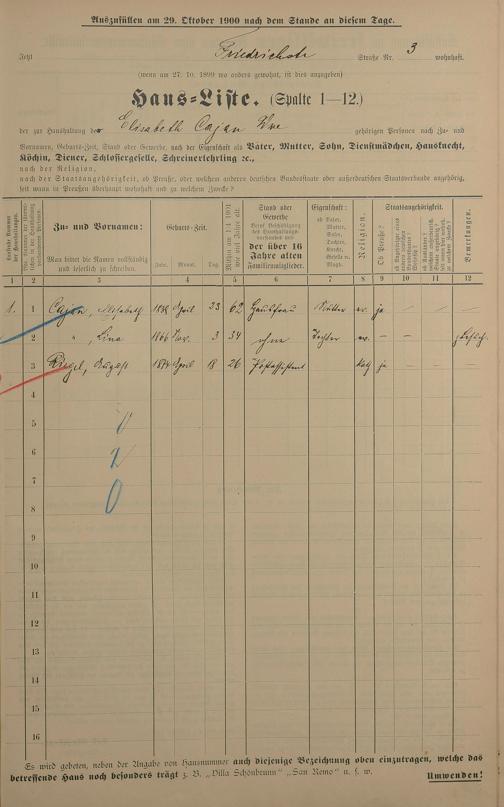 Auszufüllen am 29. Oktober 1900 nach dem Stande an diesem Tage.
Jetzt Friedrichstr Straße Nr. 3 wohnhaft.
(wenn am 27. 10. 1899 wo anders gewohnt, ist dies anzugeben)
Haus-Liste. (Spalte 1—12.)
der zur Haushaltung der Elisabeth Cajan Wwe gehörigen Personen nach Zu- und
Vornamen, Geburts-Zeit, Stand oder Gewerbe, nach der Eigenschaft als Vater, Mutter, Sohn, Dienstmädchen, Hausknecht,
Köchin, Diener, Schlossergeselle, Schreinerlehrling ꝛc.,
nach der Religion,
nach der Staatsangehörigkeit, ob Preuße, oder welchem anderen deutschen Bundesstaate oder außerdeutschen Staatsverbande angehörig,
seit wann in Preußen überhaupt wohnhaft und zu welchem Zwecke?
Zu- und Vornamen:
Man bittet die Namen vollständig
und leserlich zu schreiben.
Geburts-Zeit.
Jahr. Monat. Tag.
Stand oder
Gewerbe
Der über 16
Jahre alten
Familienmitglieder.
Eigenschaft:
ob Vater,
Mutter,
Sohn,
Tochter,
Knecht,
Geselle u.
Magd.
Religion.
Staatsangehörigkeit.
Ob Preuße?
Bemerkungen.
1 2 3 4 5 6 7 8 9 10 11 12
1. 1 Cajan, Elisabeth April 23 62 Hausfrau Mutter ev. ja
2 " , Lina 1866 Nov. 3 34 ohne Tochter ev. — —
3 Riegel, August 1874 April 18 26 Postassistent kath ja — — —
4
5
6
7
8
9
10
11
12
13
14
15
16
Es wird gebeten, neben der Angabe von Hausnummer auch diejenige Bezeichnung oben einzutragen, welche das
betreffende Haus noch besonders trägt z. B. „Villa Schönbrunn" „San Remo" u. s. w.
Umwenden!